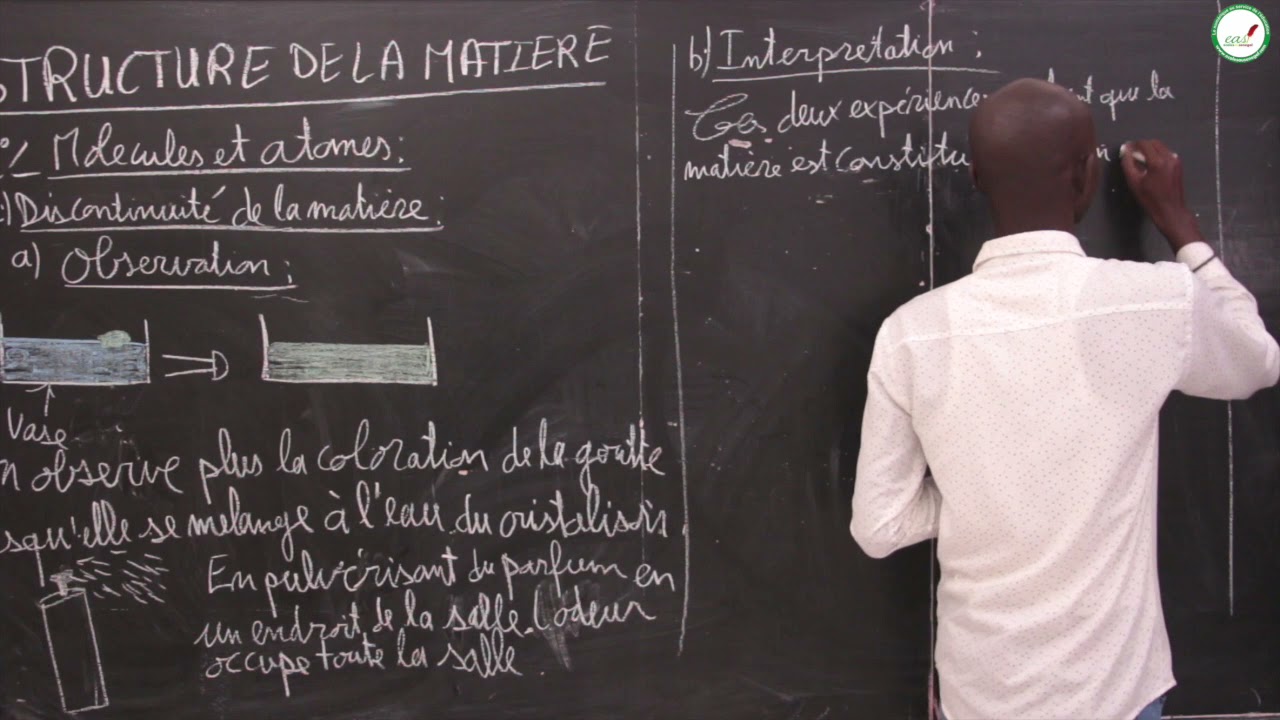 STRUCTURE DE LA MATIERE
Molecules et atomes:
Discontinuité de la matière:
a) Observation:
Vase
n observe plus la coloration de la goutte
squ'elle se melange à l'eau du cristalissir.
En pulvérisant du parfum en
un endroit de la salle. L'odeur
occupe toute la salle
b) Interpretation:
Ces deux expérience que la
matière est constitu
eas